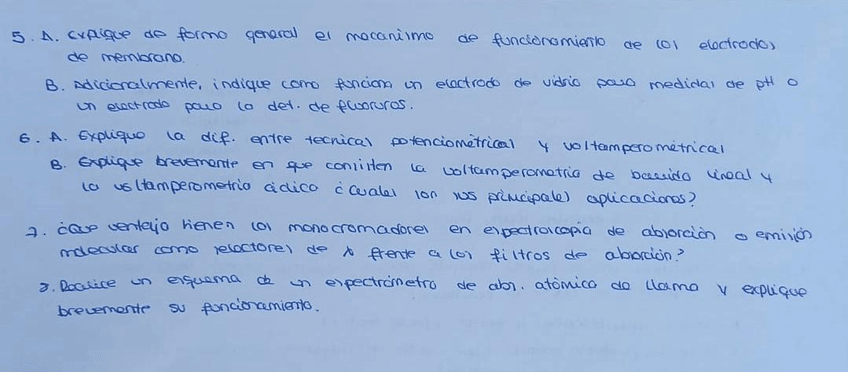 5. A. Explique de forma general el mecanismo de funcionamiento de los electrodos
de membrana.
B. Adicionalmente, indique como funciona un electrodo de vidrio para medidas de pH o
un electrodo para la det. de fluoruros.
6. A. Explique la dif. entre tecnicas potenciométricas y voltamperométricas
B. Explique brevemente en que consisten la voltamperometria de barrido lineal y
la voltamperometria cíclica ¿Cuales son sus principales aplicaciones?
7. ¿Que ventaja tienen los monocromadores en espectroscopia de absorción o emisión
molecular como selectores de λ frente a los filtros de absorción?
8. Realice un esquema de un espectrómetro de abs. atómica de llama y explique
brevemente su funcionamiento.